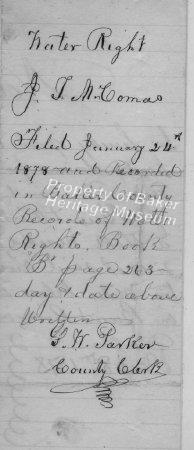 Water Right
J. T. McComas
Filed January 24th
1878 and Recorded
in Baker County
Records of Water
Rights. Book
"B" page 213
day & date above
Written
County Clerk
Property of Baker
Heritage Museum